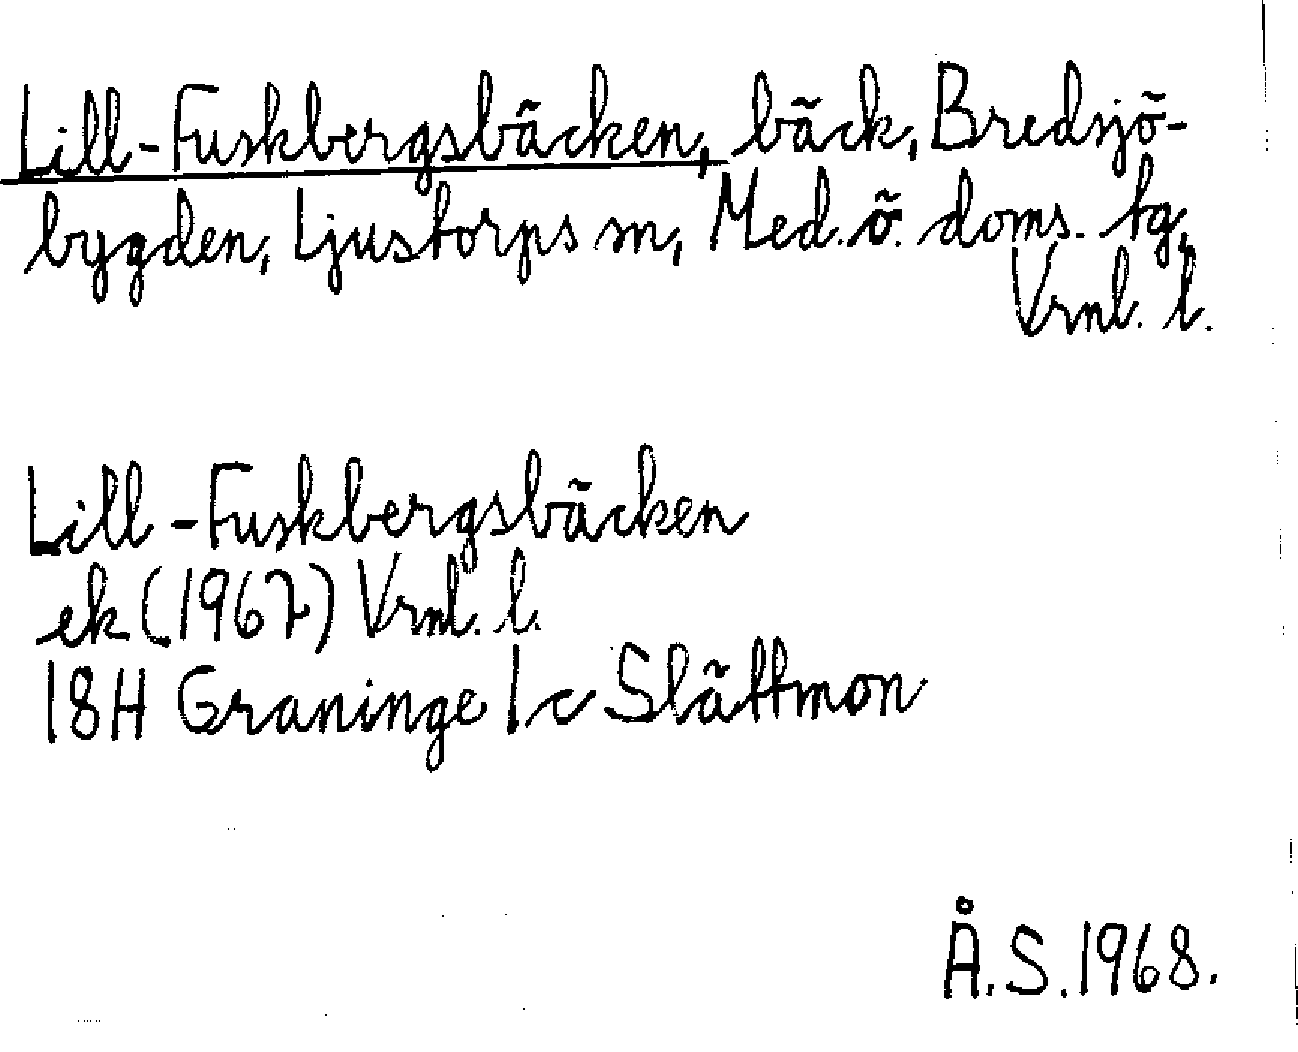 Lill-Fuskbergsbäcken, bäck, Bredsjö-
bygden, Ljustorps sn, Med. ö. doms. tg,
Vrnl. l.
Lill-Fuskbergsbäcken
ek (1967) Vrnl. l.
18H Graninge 1c Slättmon
Å.S. 1968.